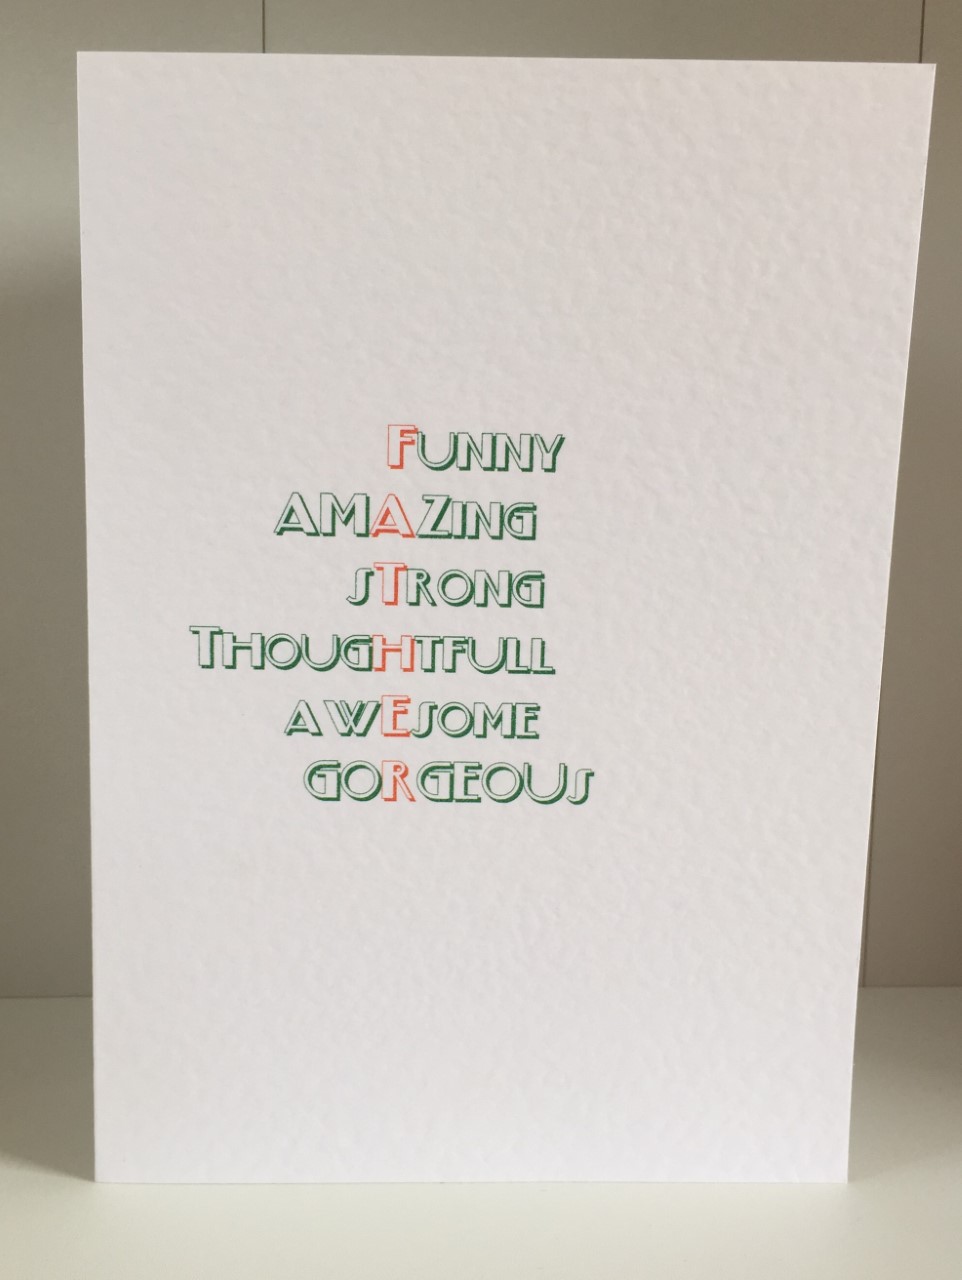 FUNNY
AMAZING
STRONG
THOUGHTFULL
AWESOME
GORGEOUS